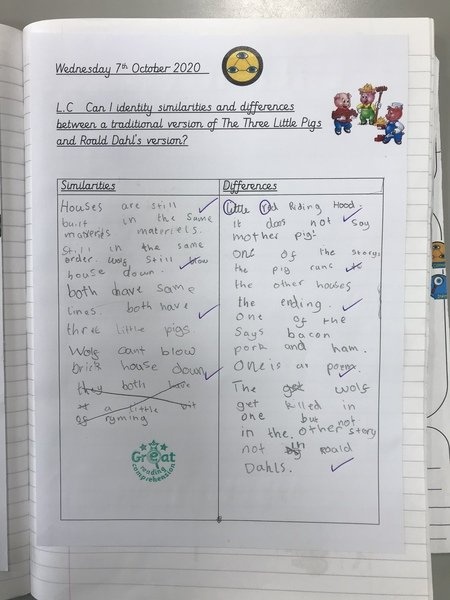 Wednesday 7th October 2020
L.C Can I identity similarities and differences
between a traditional version of The Three Little Pigs
and Roald Dahl's version?
Similarities
Houses are still
built in the same
materels materiels.
still in the same
order. wolf still blow
house down.
both have same
lines. both have
three little pigs.
Wolf cant blow
brick house down
they both have
a little bit
of ryming
Great
reading
comprehension
Differences
Little red Riding Hood.
it does not say
mother pig.
one of the storys
the pig runs to
the other houses
the ending.
one of the
says bacon
pork and ham.
One is a poem.
The got wolf
get killed in
one but not
in the other story
not in roald
Dahls.